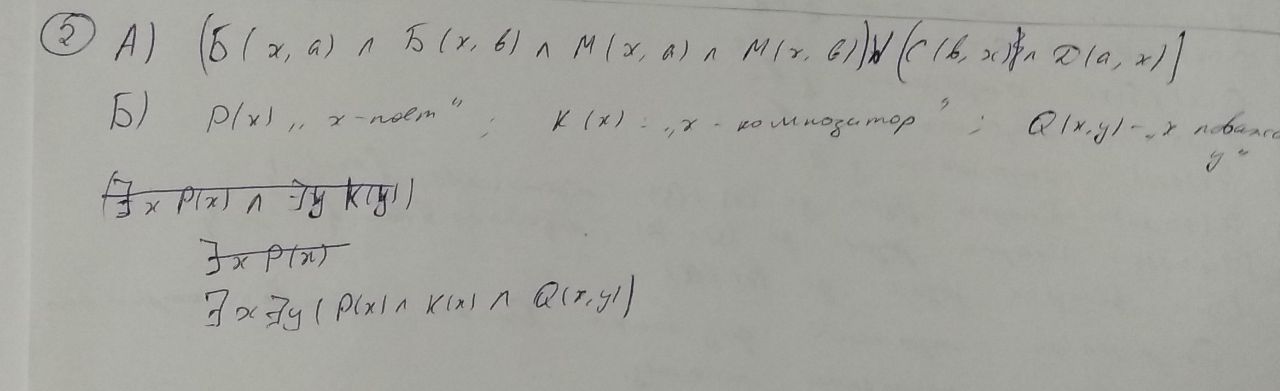 ② А) (Б(x, a) ∧ Б(x, в) ∧ M(x, a) ∧ M(x, в)) V (C(в, x) ∧ D(a, x))
Б) P(x) „x-поет“; K(x): „x-композитор“; Q(x, y) - „x поважає
y“
(∃x P(x) ∧ ∃y K(y))
∃x P(x)
∃x ∃y (P(x) ∧ K(x) ∧ Q(x, y))